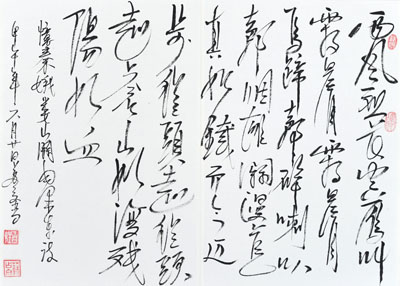 西風烈長空雁叫
霜晨月霜晨月
馬蹄聲碎喇叭
聲咽雄關漫道
真如鐵而今迈
步從頭越從頭
越蒼山如海殘
陽如血
憶秦娥婁山關
年六月廿日